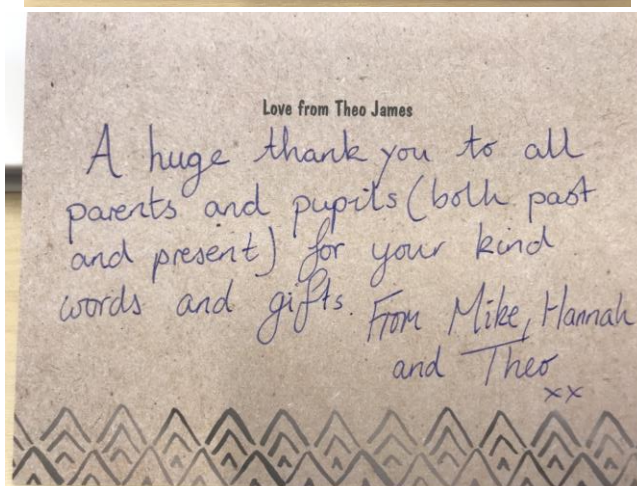 Love from Theo James
A huge thank you to all
parents and pupils (both past
and present) for your kind
words and gifts. From Mike, Hannah
and Theo
xx